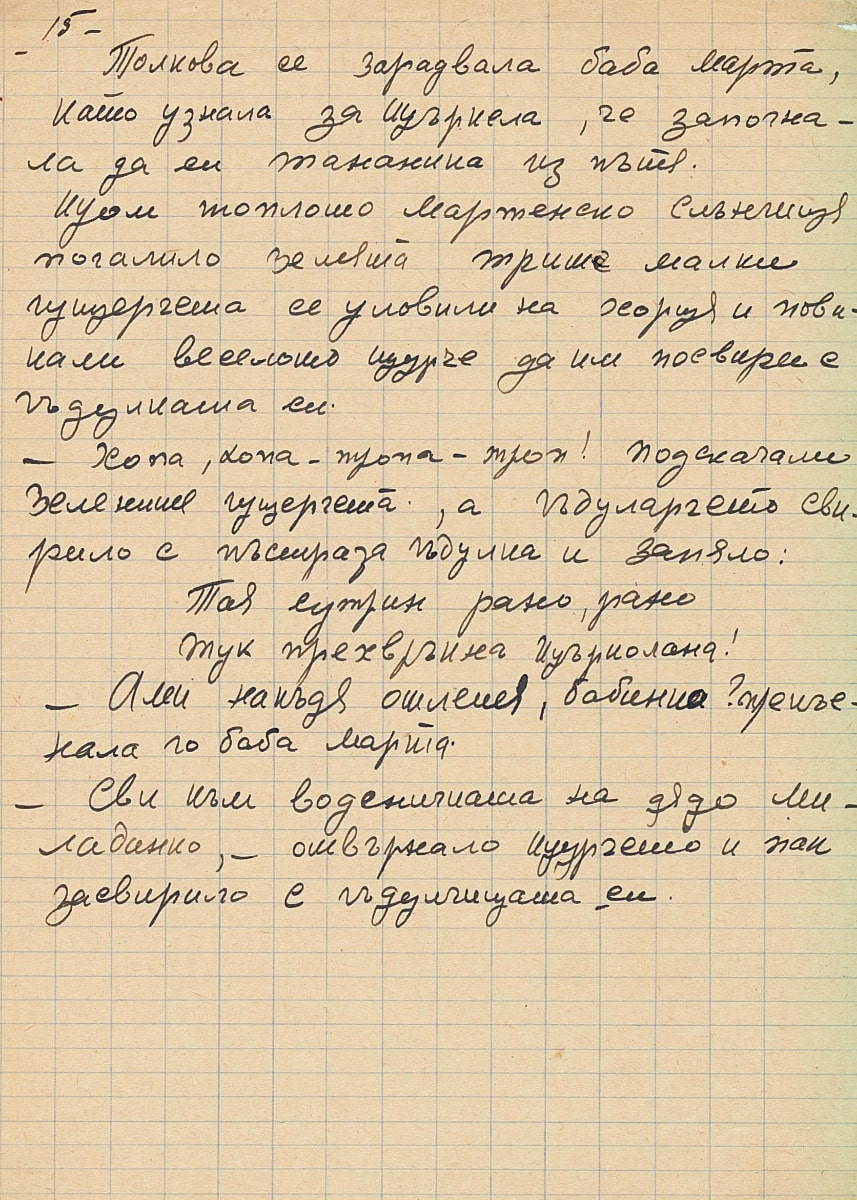 - 15 -
Толкова се зарадвала баба Марта,
като узнала за Щъркела, че започна-
ла да си тананика из пътя.
Щом топлото Мартенско слънчице
погалило земята трите малки
гущерчета се уловили на хорце и пови-
кали веселото щурче да им посвири с
гъдулката си.
— Хопа, хопа - тропа - троп! подскачали
Зелените гущерчета, а гъдуларчето сви-
рило с пъстраза гъдулка и запяло:
Тая сутрин рано, рано
тук прехвръкна Щърколана!
— Ами накъдя отлетя, бабинка? пресъе-
кала го баба Марта.
— Сви към воденичката на дядо Ми-
ладинко, — отвърнало Щурчето и пак
засвирило с гъдулчицата си.